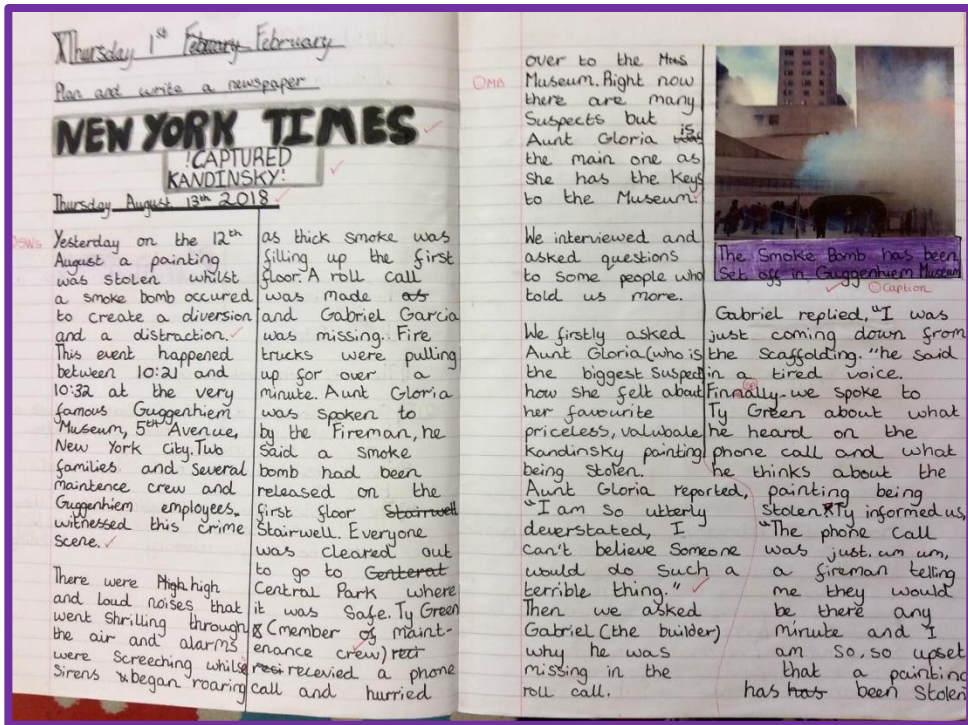 Thursday 1st February February
Plan and write a newspaper
NEW YORK TIMES
!CAPTURED
KANDINSKY!
Thursday August 13th 2018
DSWS
Yesterday on the 12th
August a painting
was stolen whilst
a smoke bomb occured
to create a diversion
and a distraction.
This event happened
between 10:21 and
10:32 at the very
famous Guggenhiem
Museum, 5th Avenue,
New York City. Two
families and several
maintence crew and
Guggenhiem employees.
witnessed this crime
scene.
There were high high
and loud noises that
went shrilling through
the air and alarms
were screeching whilse
sirens began roaring
as thick smoke was
filling up the first
floor. A roll call
was made as
and Gabriel Garcia
was missing. Fire
trucks were pulling
up for over a
minute. Aunt Gloria
was spoken to
by the Fireman, he
said a smoke
bomb had been
released on the
first floor Stairwell
Stairwell. Everyone
was cleared out
to go to Centerat
Central Park where
it was safe. Ty Green
(member of maint-
enance crew) reci
reci recevied a phone
call and hurried
over to the Mus
OMB
Museum. Right now
there are many
Suspects but
Aunt Gloria is
the main one as
she has the keys
to the Museum.
We interviewed and
asked questions
to some people who
told us more.
We firstly asked
Aunt Gloria (who is
the biggest suspect)
how she felt about
her favourite
priceless, valubale
kandinsky painting
being stolen.
Aunt Gloria reported,
"I am so utterly
deverstated, I
can't believe someone
would do such a
terrible thing."
Then we asked
Gabriel (the builder)
why he was
missing in the
roll call.
The Smoke Bomb has been
Set off in Guggenhiem Museum
Caption
Gabriel replied, "I was
just coming down from
the scaffolding. "he said
in a tired voice.
Finnally- we spoke to
Ty Green about what
he heard on the
phone call and what
he thinks about the
painting being
stolen. Ty informed us,
"The phone call
was just. um um,
a fireman telling
me they would
be there any
minute and I
am so, so upset
that a painting
has has been stolen